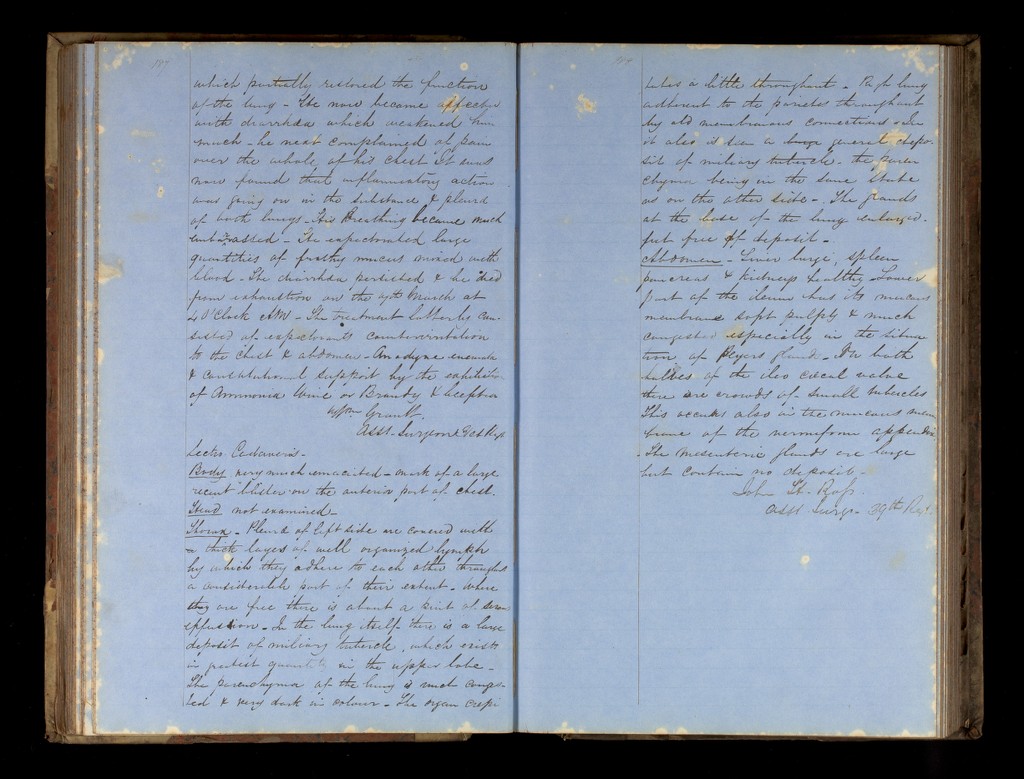 which partially restored the function
of the lung - He now became affected
with diarrhœa which weakened him
much - he next complained of pain
over the whole of his chest It was
now found that inflammatory action
was going on in the substance & pleura
of both lungs - His Breathing became much
embarrassed - He expectorated large
quantities of frothy mucus mixed with
blood - The diarrhœa persisted & he died
from exhaustion on the March at
4 O'Clock AM - The treatment latterly con-
sisted of expectorants counterirritation
to the chest & abdomen - Anodyne enemata
& constitutional support by the exhibition
of Ammonia Wine or Brandy &
Wm Grant
Asst. Surgeon Regt
Sectio Cadaveris -
Body very much emaciated - mark of a large
recent blister on the anterior part of chest.
Head not examined -
Thorax - Pleura of left side are covered with
a thick layer of well organized lymph
by which they adhere to each other through
a considerable part of their extent - Where
they are free there is about a pint of serous
effusion - In the lung itself there is a large
deposit of miliary tubercle, which exists
in greatest quantity in the upper lobe -
The parenchyma of the lung is much conges-
ted & very dark in colour - The organ crepi
tates a little throughout - Right lung
adherent to the parietes throughout
by old membranous connections - In
it also is seen a large general depo-
sit of miliary tubercle - the paren
chyma being in the same state
as on the other side - The glands
at the base of the lung enlarged -
but free of deposit -
Abdomen - Liver large, spleen
pancreas & kidneys healthy - Lower
part of the ileum has its mucus
membrane soft pulpy & much
congested especially in the situa
tion of Peyers gland - On both
halves of the ileo cœcal valve
there are crowds of small tubercles
This occurs also in the mucous mem
brane of the vermiform appendix
- The mesenteric glands are large
but contain no deposit -
John St. Ross.
Asst. Surgn - 39th Regt.